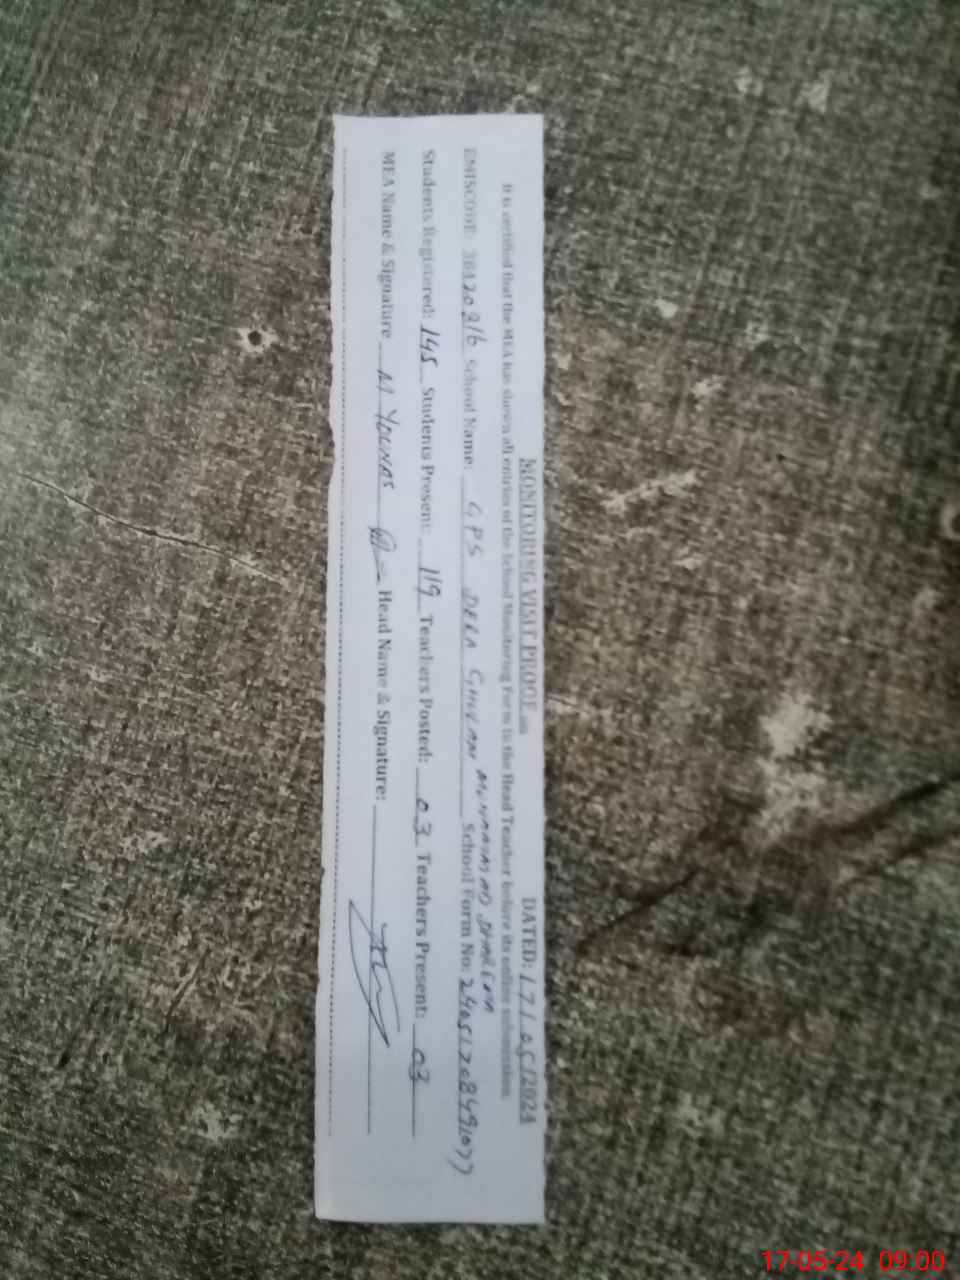 MONITORING VISIT PROOF DATED: 17/05/2024
It is certified that the MEA has shown all entries of the School Monitoring Form to the Head Teacher before its online submission.
EMISCODE: 38420216 School Name: GPS DERA GHULAM MUHAMMAD School Form No: 2405170849
Students Registered: 145 Students Present: 119 Teachers Posted: 03 Teachers Present: 03
MEA Name & Signature M YOUNAS Head Name & Signature:
17-05-24 09:00